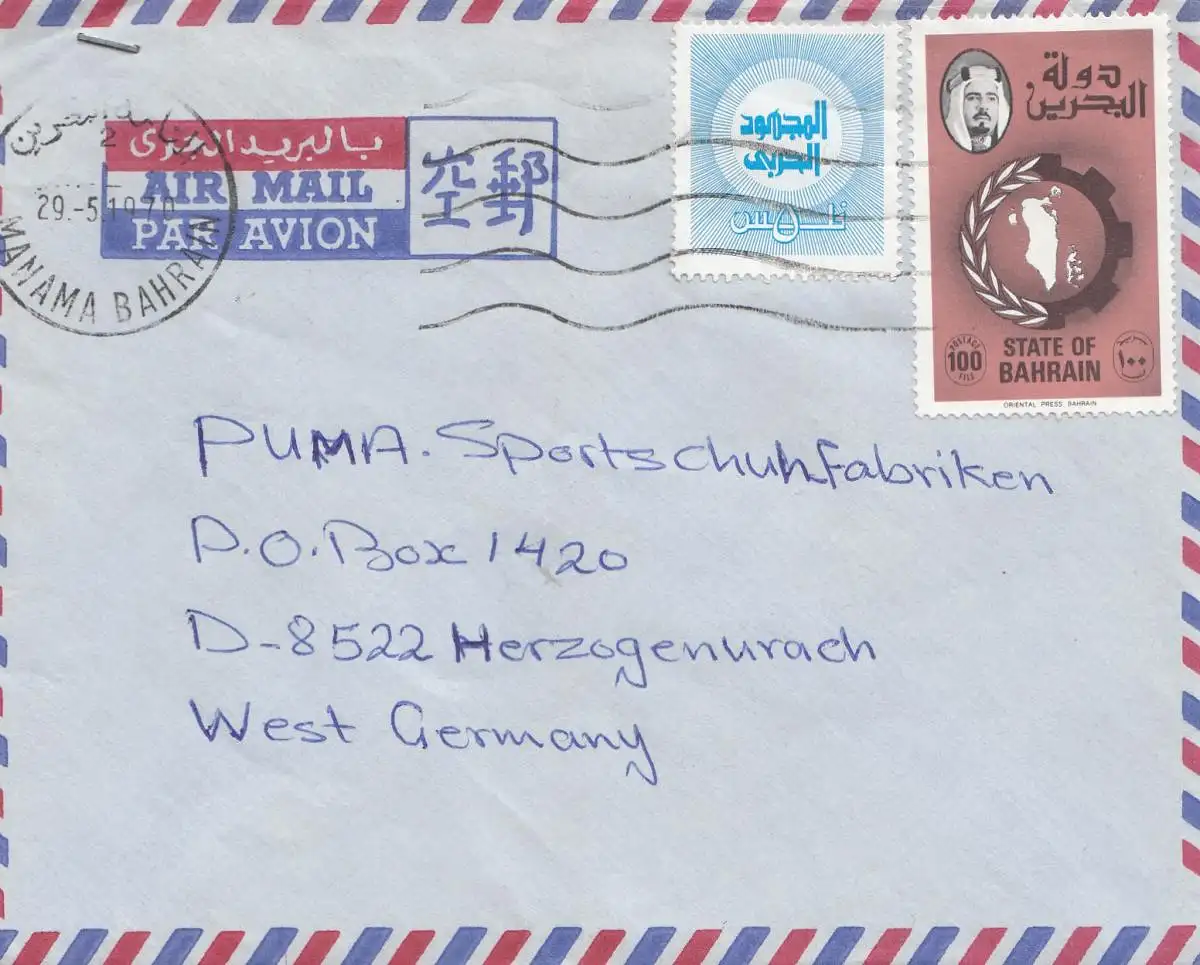 المنامة البحرين
2
29.-5.1978
MANAMA BAHRAIN
بالبريد الجوى
AIR MAIL
PAR AVION
空郵
المجهود
الحربى
فلس
دولة
البحرين
POSTAGE
100
FILS
STATE OF
BAHRAIN
١٠٠
ORIENTAL PRESS BAHRAIN
PUMA. Sportschuhfabriken
P.O.Box 1420
D-8522 Herzogenurach
West Germany